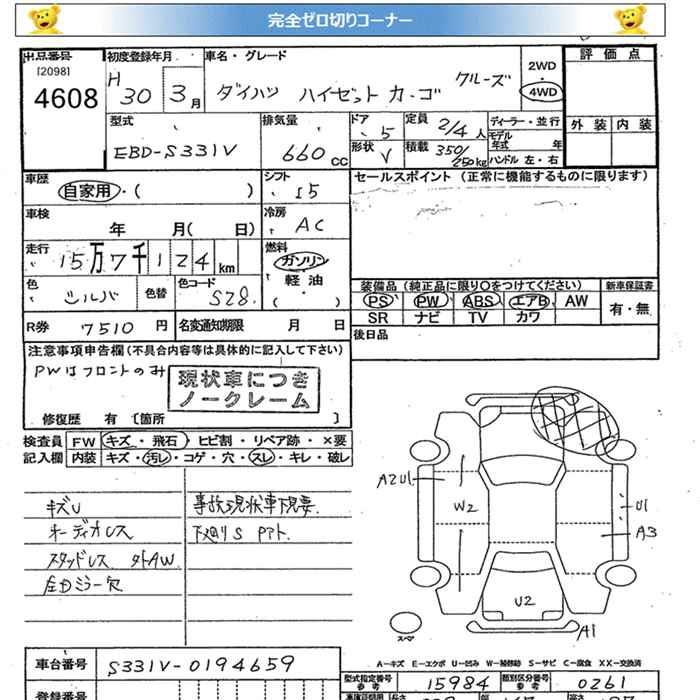 完全ゼロ切りコーナー
出品番号
[2098]
4608
初度登録年月
H
30 3月
車名・グレード
ダイハツ ハイゼット カーゴ クルーズ
2WD
・
4WD
評価点
外装 内装
型式
EBD-S331V
排気量
660cc
ドア
5
形状
V
定員 2/4人
積載 350/250kg
ディーラー・並行
モデル
年式 年
ハンドル 左・右
車歴
自家用・( )
シフト
I5
セールスポイント (正常に機能するものに限ります)
車検
年 月( 日)
冷房
AC
走行
15万7千124km
燃料
ガソリン
・
軽油
( )
色
シルバ
色替
色コード
S28.
装備品(純正品に限り○をつけてください)
新車保証書
PS PW ABS エアB AW
SR ナビ TV カワ
有・無
R券 7510円
名変通知期限 月 日
後日品
注意事項申告欄(不具合内容等は具体的に記入して下さい)
PWはフロントのみ
現状車につき
ノークレーム
修復歴 有 〔箇所 〕
検査員
記入欄
FW キズ・飛石・ヒビ割・リペア跡・×要
内装 キズ・汚し・コゲ・穴・スレ・キレ・破レ
キズU
オーディオレス
スタッドレス 外AW
左Dミラー欠
事故現状車下見要
下廻りS
A2U1
W2
U1
A3
U2
A1
スペア
A-キズ E-エクボ U-凹み W-補修跡 S-サビ C-腐食 XX-交換済
車台番号 S331V-0194659
型式指定番号
参考
15984
類別区分番号
参考
0261
登録番号